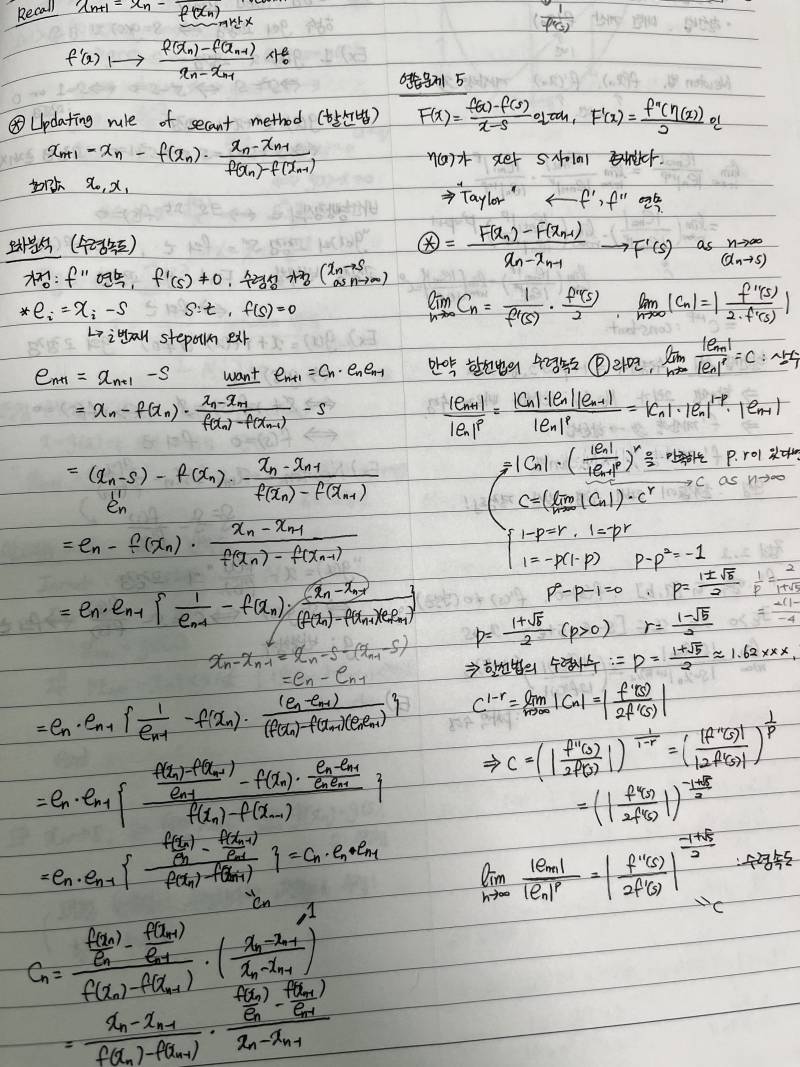 Recall xₙ₊₁ = xₙ - / f'(xₙ)
↳ 계산 x
f'(x) ⟼ (f(xₙ)-f(xₙ₋₁))/(xₙ-xₙ₋₁) 사용
⊛ Updating rule of secant method (할선법)
xₙ₊₁ = xₙ - f(xₙ)· (xₙ-xₙ₋₁)/(f(xₙ)-f(xₙ₋₁))
초기값 x₀, x₁
오차분석 (수렴속도)
가정: f'' 연속, f'(s) ≠ 0, 수렴성 가정 (xₙ→s as n→∞)
* eᵢ = xᵢ - s s.t, f(s)=0
↳ i번째 step에서 오차
eₙ₊₁ = xₙ₊₁ - s want eₙ₊₁ = Cₙ· eₙeₙ₋₁
= xₙ - f(xₙ)· (xₙ-xₙ₋₁)/(f(xₙ)-f(xₙ₋₁)) - s
= (xₙ-s) - f(xₙ)· (xₙ-xₙ₋₁)/(f(xₙ)-f(xₙ₋₁))
eₙ
= eₙ - f(xₙ)· (xₙ-xₙ₋₁)/(f(xₙ)-f(xₙ₋₁))
= eₙ·eₙ₋₁ { 1/eₙ₋₁ - f(xₙ)· (xₙ-xₙ₋₁)/((f(xₙ)-f(xₙ₋₁))(eₙeₙ₋₁)) }
xₙ-xₙ₋₁ = xₙ-s-(xₙ₋₁-s)
= eₙ-eₙ₋₁
= eₙ·eₙ₋₁ { 1/eₙ₋₁ - f(xₙ)· (eₙ-eₙ₋₁)/((f(xₙ)-f(xₙ₋₁))(eₙeₙ₋₁)) }
= eₙ·eₙ₋₁ { ((f(xₙ)-f(xₙ₋₁))/eₙ₋₁ - f(xₙ)· (eₙ-eₙ₋₁)/(eₙeₙ₋₁))/(f(xₙ)-f(xₙ₋₁)) }
= eₙ·eₙ₋₁ { (f(xₙ)/eₙ - f(xₙ₋₁)/eₙ₋₁)/(f(xₙ)-f(xₙ₋₁)) } = Cₙ·eₙ·eₙ₋₁
Cₙ
1
Cₙ = (f(xₙ)/eₙ - f(xₙ₋₁)/eₙ₋₁)/(f(xₙ)-f(xₙ₋₁)) · ((xₙ-xₙ₋₁)/(xₙ-xₙ₋₁))
= (xₙ-xₙ₋₁)/(f(xₙ)-f(xₙ₋₁)) · (f(xₙ)/eₙ - f(xₙ₋₁)/eₙ₋₁)/(xₙ-xₙ₋₁)
1/f'(s)
연습문제 5
F(x) = (f(x)-f(s))/(x-s) 일때, F'(x) = f''(η(x))/2 인
η(x)가 x와 s 사이에 존재한다.
⇒ "Taylor" ← f', f'' 연속
⊛ = (F(xₙ)-F(xₙ₋₁))/(xₙ-xₙ₋₁) → F'(s) as n→∞ (xₙ→s)
lim n→∞ Cₙ = 1/f'(s) · f''(s)/2 , lim n→∞ |Cₙ| = |f''(s)/(2·f'(s))|
만약 할선법의 수렴속도 ⓟ라면, lim n→∞ |eₙ₊₁|/|eₙ|ᵖ = C : 상수
|eₙ₊₁|/|eₙ|ᵖ = |Cₙ|·|eₙ||eₙ₋₁|/|eₙ|ᵖ = |Cₙ|·|eₙ|¹⁻ᵖ·|eₙ₋₁|
= |Cₙ|·(|eₙ|/|eₙ₋₁|ᵖ)ʳ 을 만족하는 p, r이 있다면
→ C as n→∞
C = (lim n→∞ |Cₙ|)·Cʳ
{ 1-p=r, 1=-pr
1=-p(1-p) p-p²=-1
p²-p-1=0 , p=(1±√5)/2
p=(1+√5)/2 (p>0) r=(1-√5)/2
⇒ 할선법의 수렴차수 := p = (1+√5)/2 ≈ 1.62×××,
C¹⁻ʳ = lim n→∞ |Cₙ| = |f''(s)/2f'(s)|
⇒ C = (|f''(s)/2f'(s)|)^(1/(1-r)) = (|f''(s)|/|2f'(s)|)^(1/p)
= (|f''(s)/2f'(s)|)^((-1+√5)/2)
lim n→∞ |eₙ₊₁|/|eₙ|ᵖ = |f''(s)/2f'(s)|^((-1+√5)/2) : 수렴속도
C